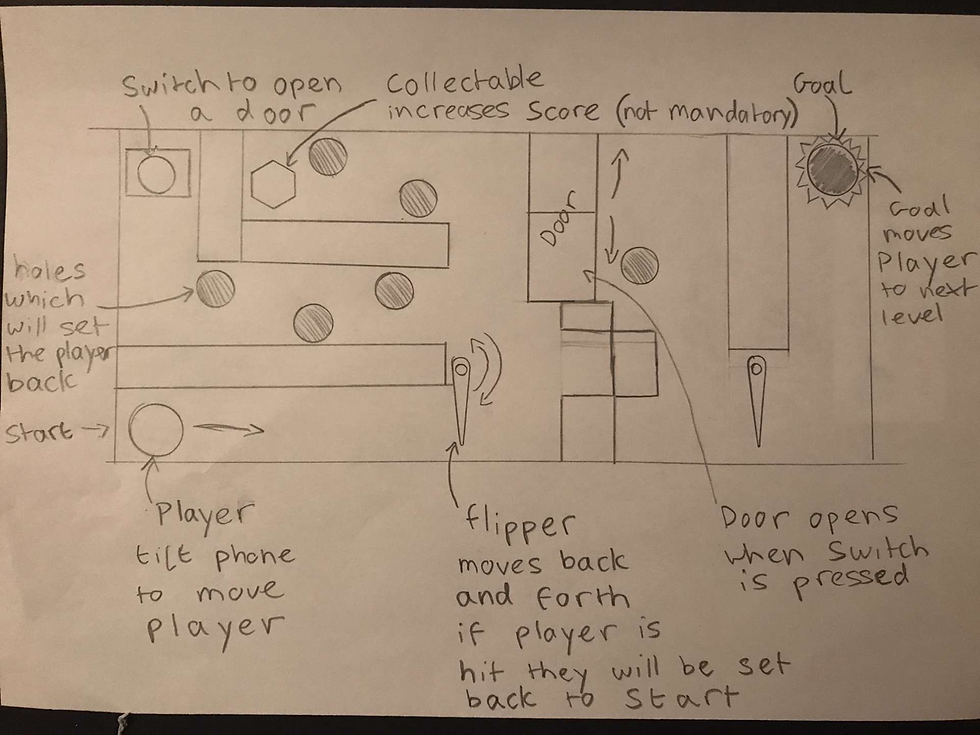 Switch to open
a door
Collectable
increases score (not mandatory)
Goal
Door
Goal
moves
Player
to next
level
holes
which
will set
the player
back
Start
Player
tilt phone
to move
player
flipper
moves back
and forth
if player is
hit they will be set
back to start
Door opens
when switch
is pressed